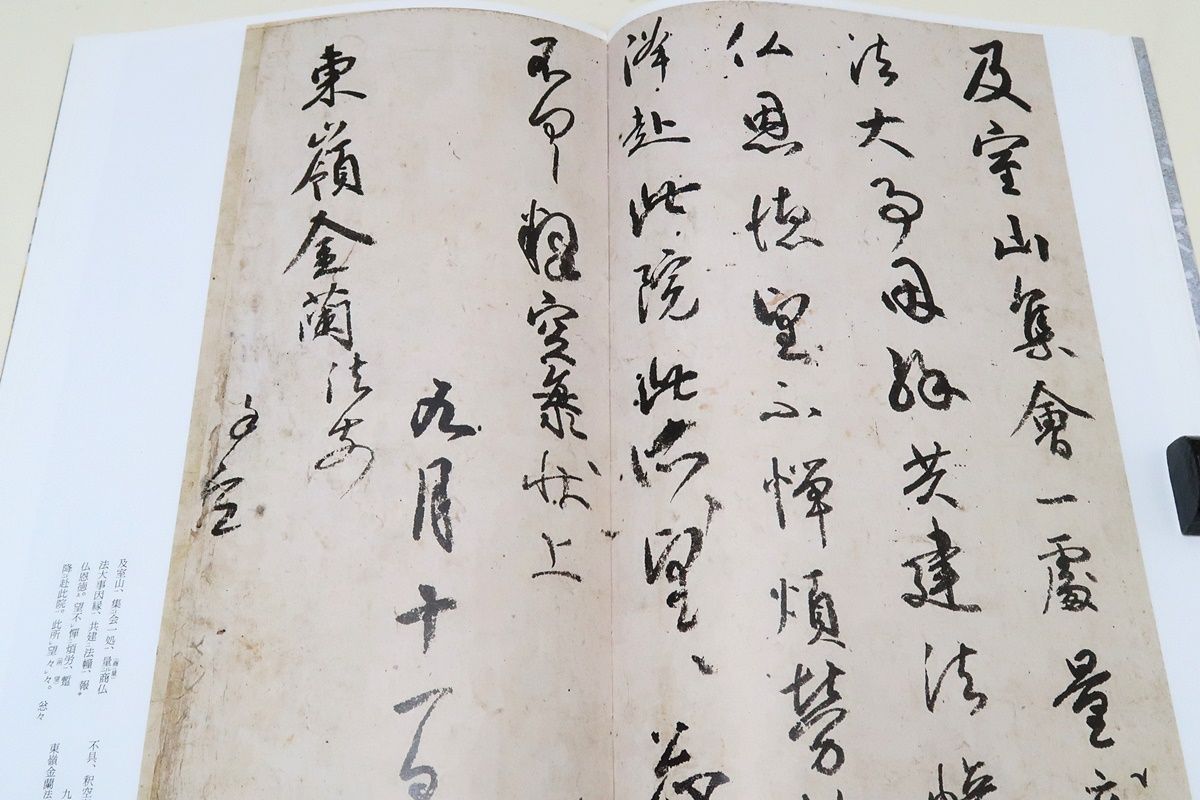 及室山集會一處量
法大事因縁共建法幢
仏恩徳望不憚煩勞
降赴此院此所望々忩
不具釋空海状上
九月十一日
東嶺金蘭法前
謹空
及室山、集会一処、量商仏
法大事因縁、共建法幢、報
仏恩徳。望不憚煩労、蹔
降赴此院。此所望々々。忩々
不具、釈空
九
東嶺金蘭法